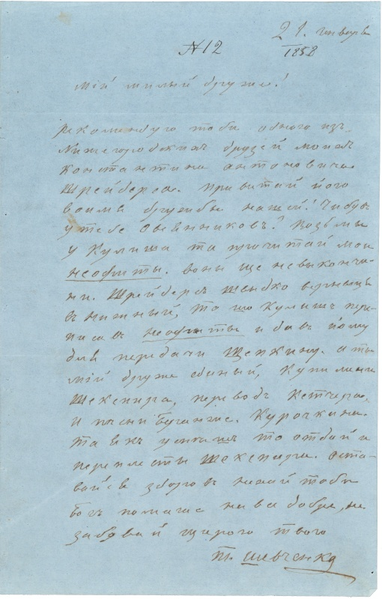 № 12
21. генваря
1858
Мій милый друже!
Рекомендую тоби одного изъ
Нижегородскихъ друзей моихъ
Константина Антоновича
Шрейдерса. Привитай його
во имя дружбы нашои! Чи був
у тебе Овсянников? Возьмы
у Кулиша та прочитай мои
неофиты. воны ще невыконча
ни. Шрейдерс швыдко вернецця
в нижний, то що Кулиш пере
писав неофиты и дав йому
для передачи Щепкину. а ты
мій друже единый, купи мени
Шекспира, переводъ Кетчера,
и писни Беранже. Курочкина.
та як успіеш то оддай в
переплеты Шекспира. Оста
вайся здоров нехай тоби
бог помагає на все добре, не
забувай щирого твого
Т. Шевченка